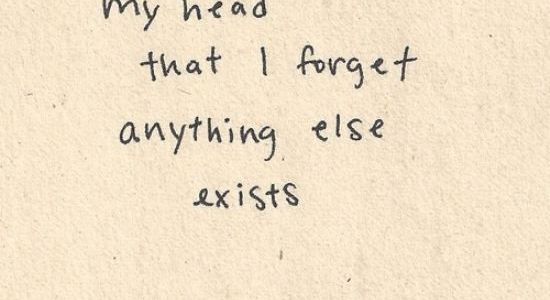 my head
that I forget
anything else
exists